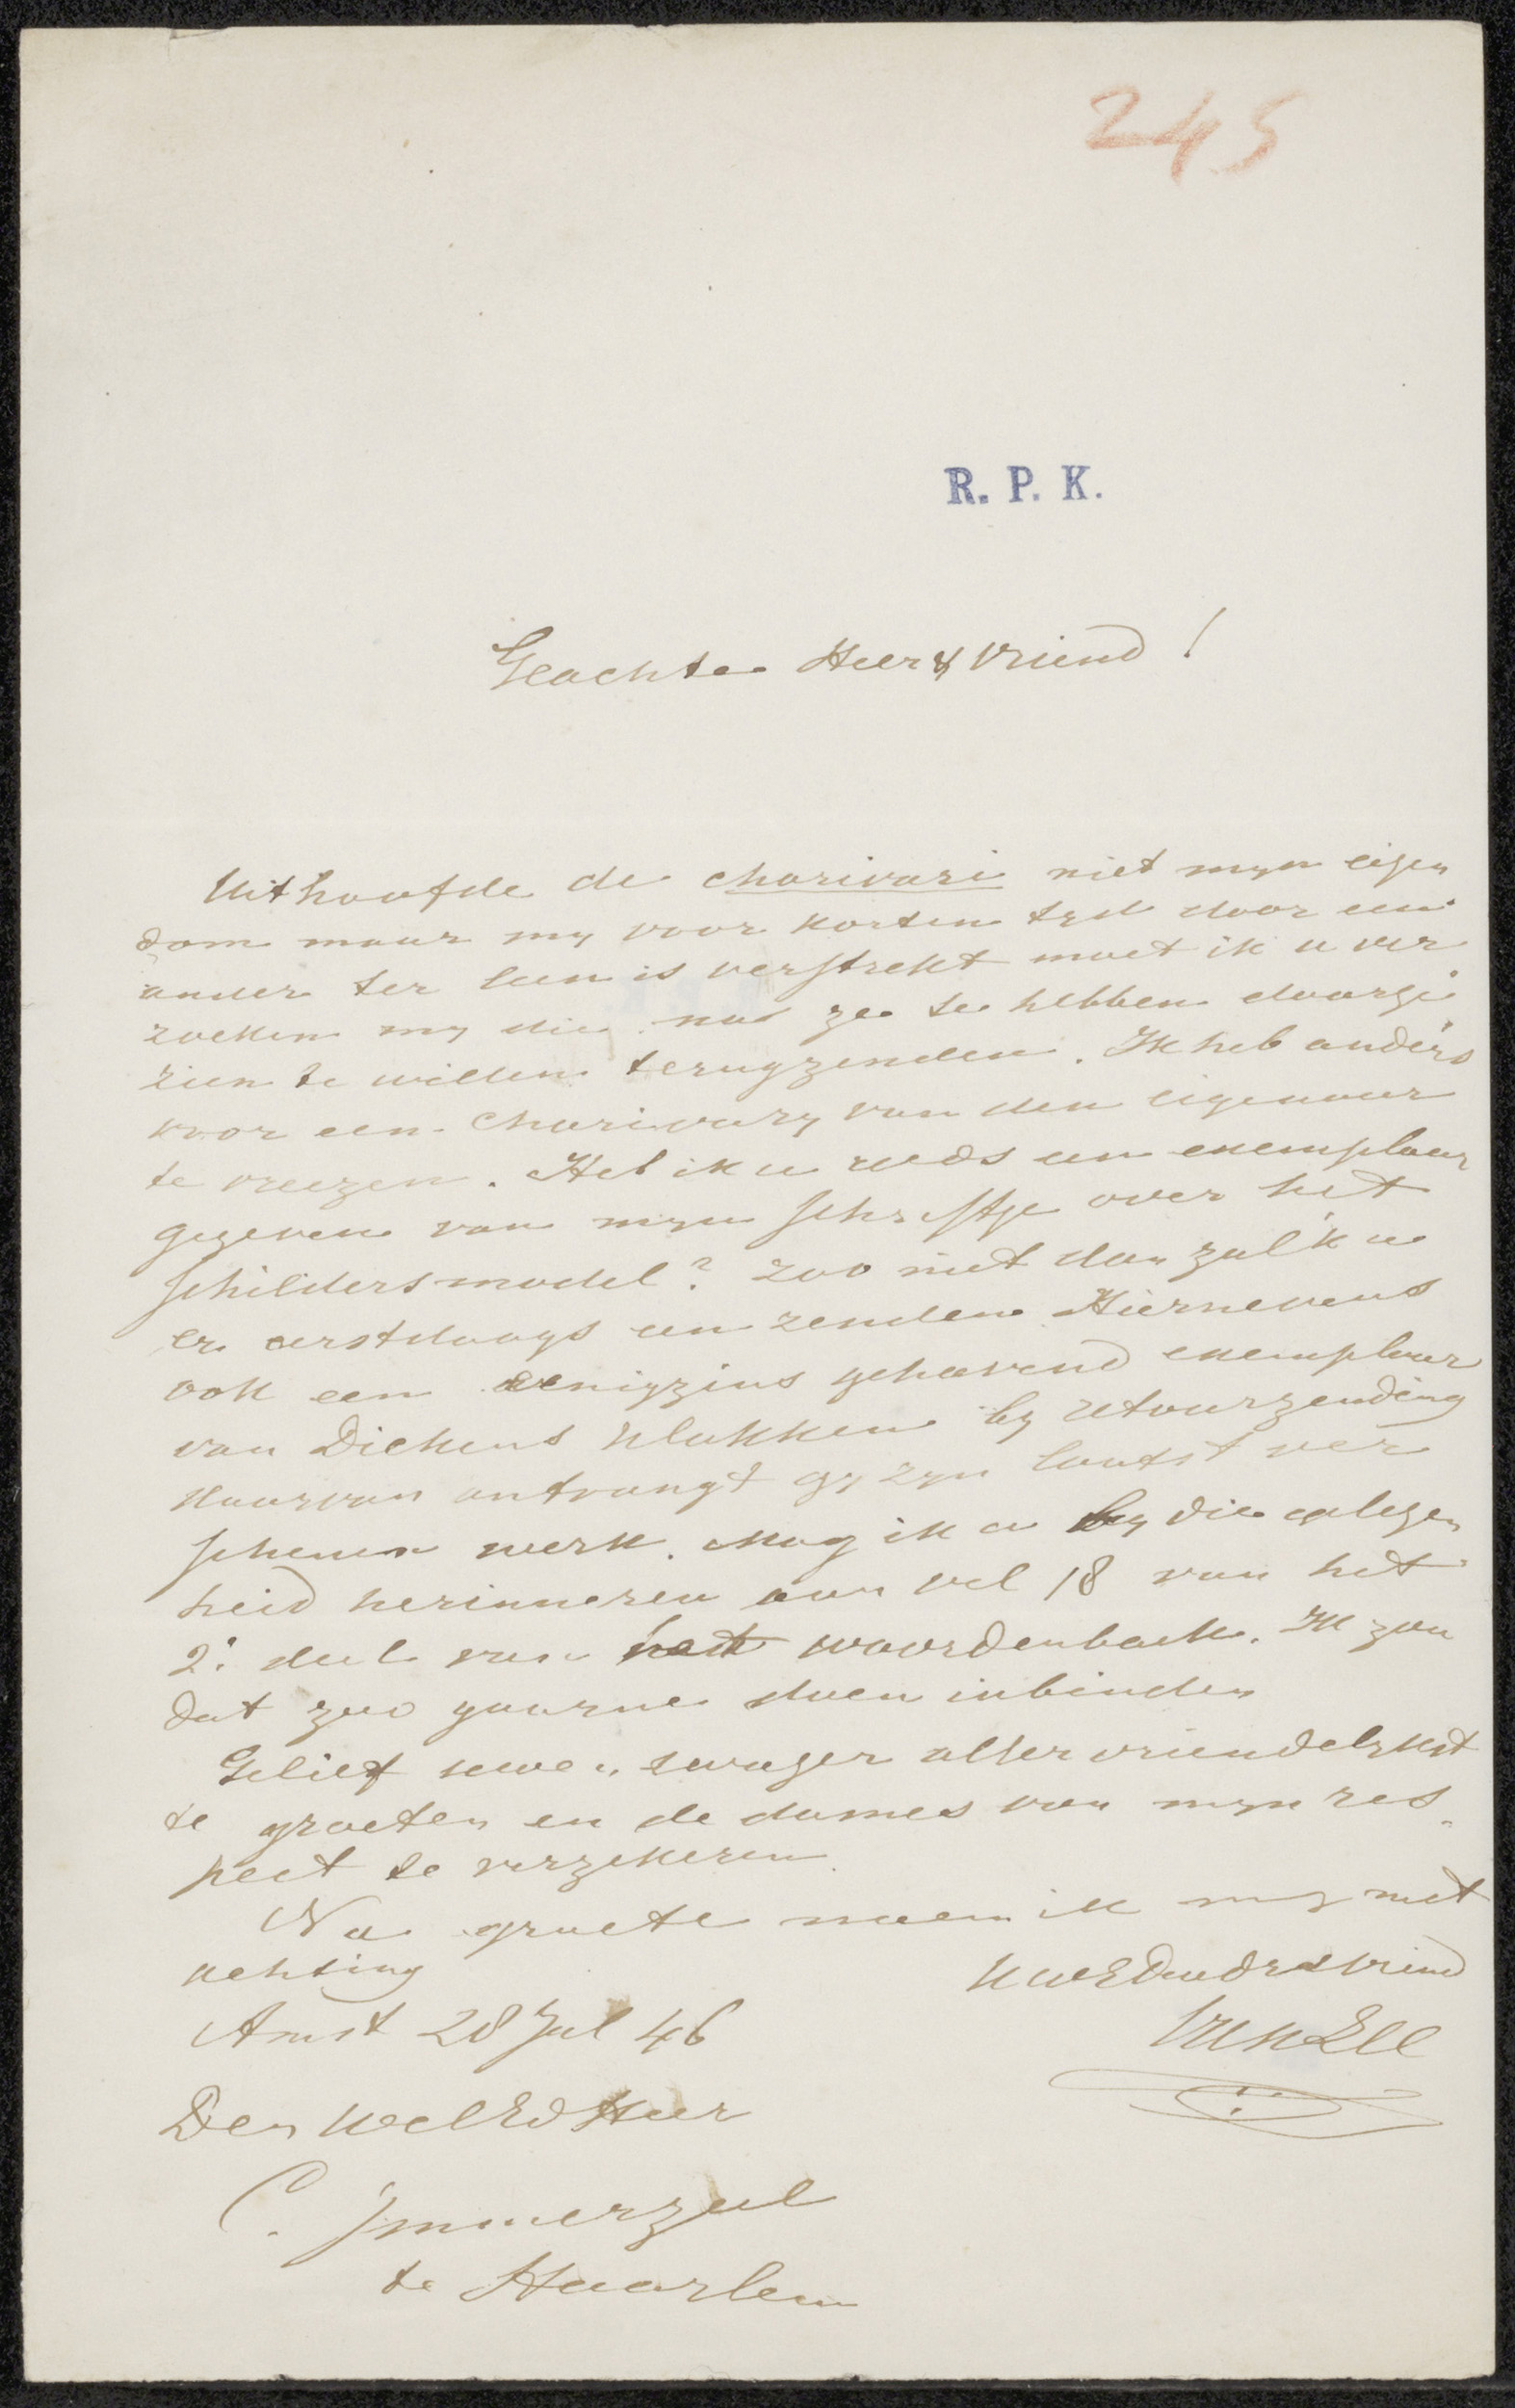 245
R. P. K.
Geachte Heer & Vriend !
Uithoofde de charivari niet myn eigen
dom maar my voor korten tyd door een
ander ter leen is verstrekt moet ik u ver
zoeken my die na ze te hebben doorge
zien te willen terugzenden. Ik heb anders
voor een charivary van den eigenaar
te vreezen. Heb ik u reeds een exemplaar
gegeven van myn schriftje over het
schildersmodel? Zoo niet dan zal ik u
er eerstdaags een zenden. Hiernevens
ook een eenigzins gehavend exemplaar
van Dickens klokken by retourzending
waarvan ontvangt gy zyn laatst ver
schenen werk. Mag ik u by die gelegen
heid herinneren aan vel 18 van het
2e deel van het woordenboek. Ik zou
dat zoo gaarne doen inbinden
Gelief uwen zwager allervriendelykst
te groeten en de dames van myn res
pect te verzekeren.
Na groete noem ik my met
achting
UwEd dw dr & vriend
Amst 28 Jul 46
Den WelEd Heer
C. Immerzeel
te Haarlem